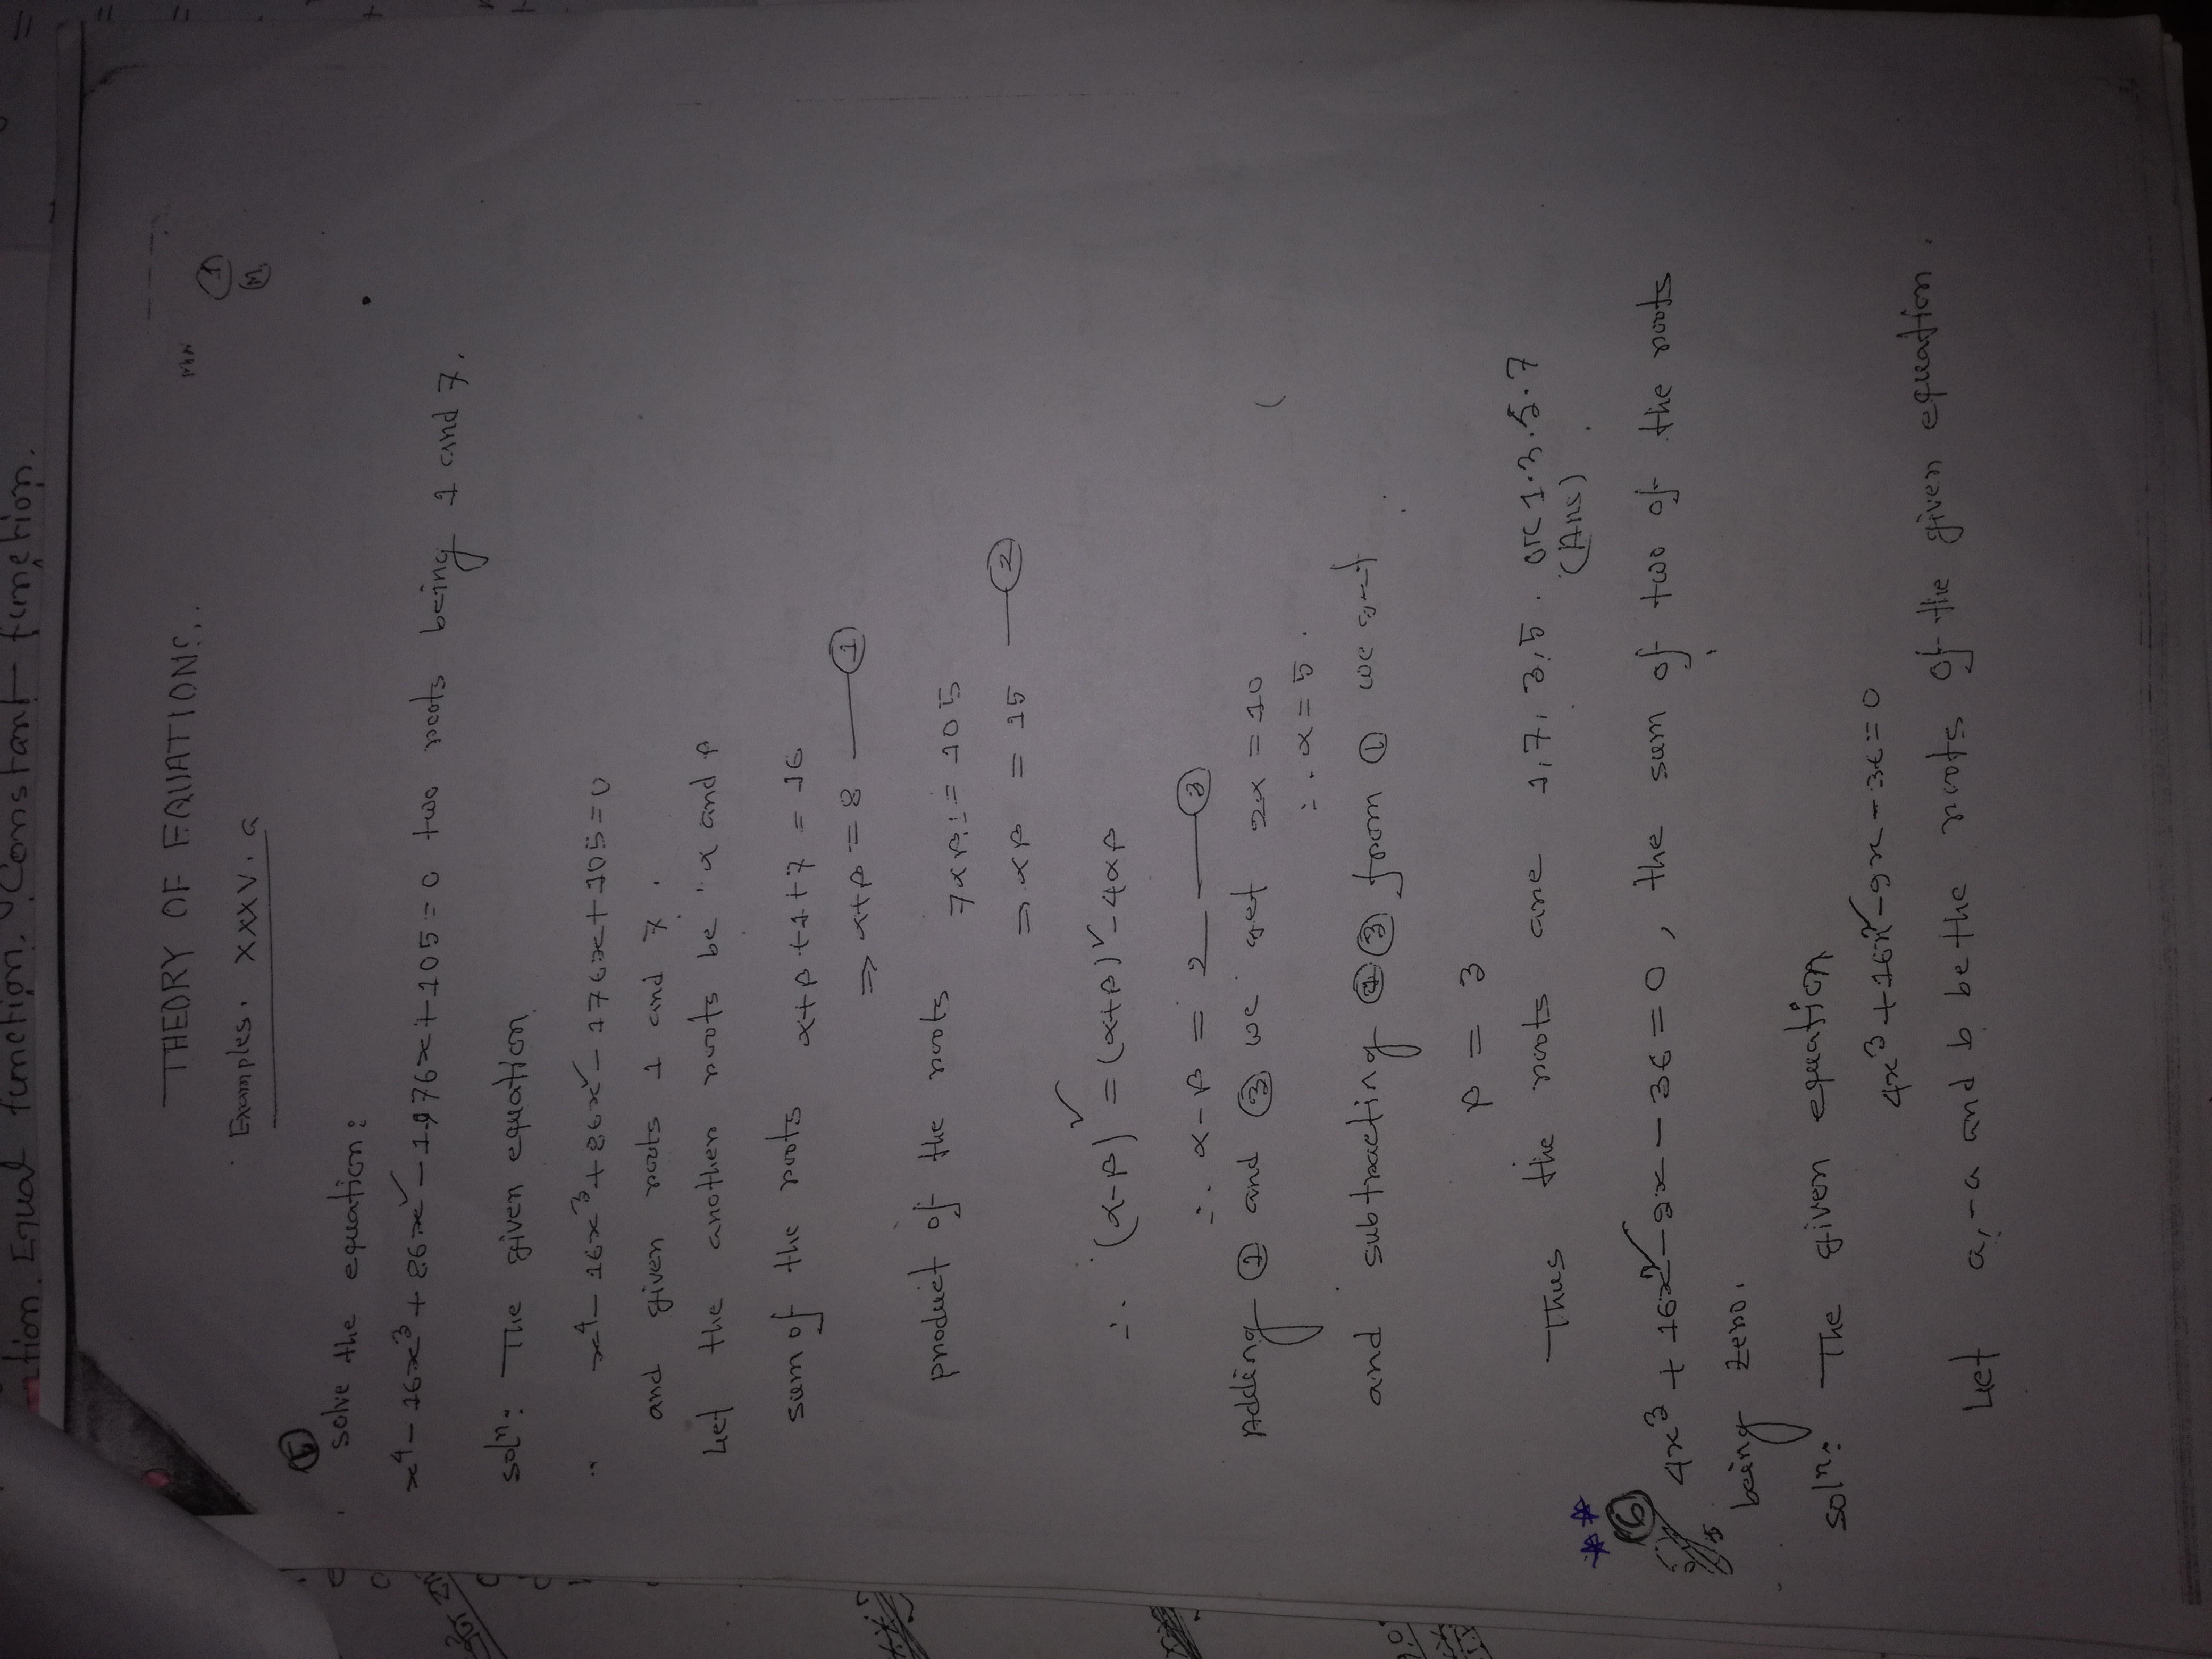 ction. Equal function. Constant function.
THEORY OF EQUATIONS.
Examples. XXXV. a
1
5
solve the equation:
x⁴ - 16x³ + 86x² - 176x + 105 = 0 two roots being 1 and 7.
soln: The given equation
x⁴ - 16x³ + 86x² - 176x + 105 = 0
and given roots 1 and 7.
Let the another roots be α and β
sum of the roots α+β+1+7 = 16
⇒ α+β = 8 —— ①
product of the roots 7αβ = 105
⇒ αβ = 15 —— ②
∴ (α-β)² = (α+β)² - 4αβ
∴ α-β = 2 —— ③
Adding ① and ③ we get 2α = 10
∴ α = 5.
and subtracting ③ from ① we get
β = 3
Thus the roots are 1, 7, 3, 5. or 1.3.5.7
(Ans)
6
4x³ + 16x² - 9x - 36 = 0, the sum of two of the roots
being zero.
soln: The given equation
4x³ + 16x² - 9x - 36 = 0
Let a, -a and b be the roots of the given equation.